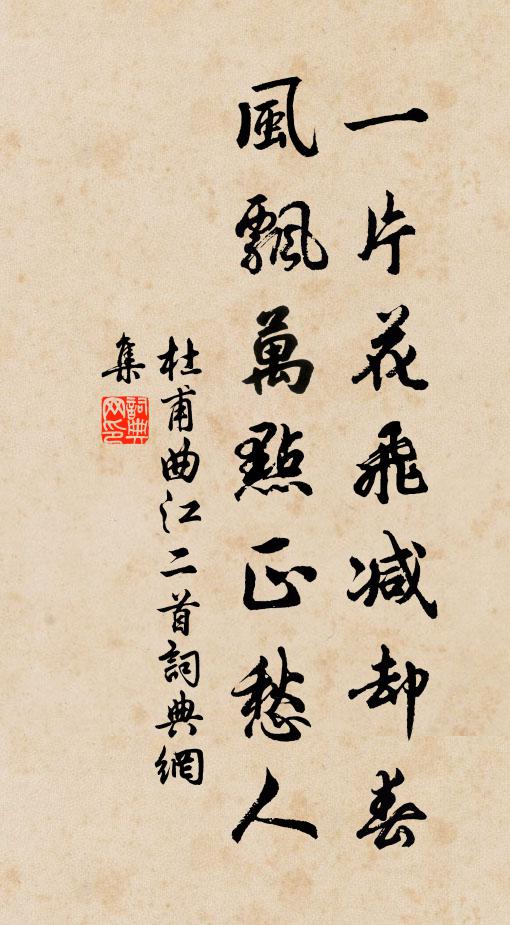 一片花飛减却春
風飄萬點正愁人
杜甫曲江二首詞典網
集
詞典网印